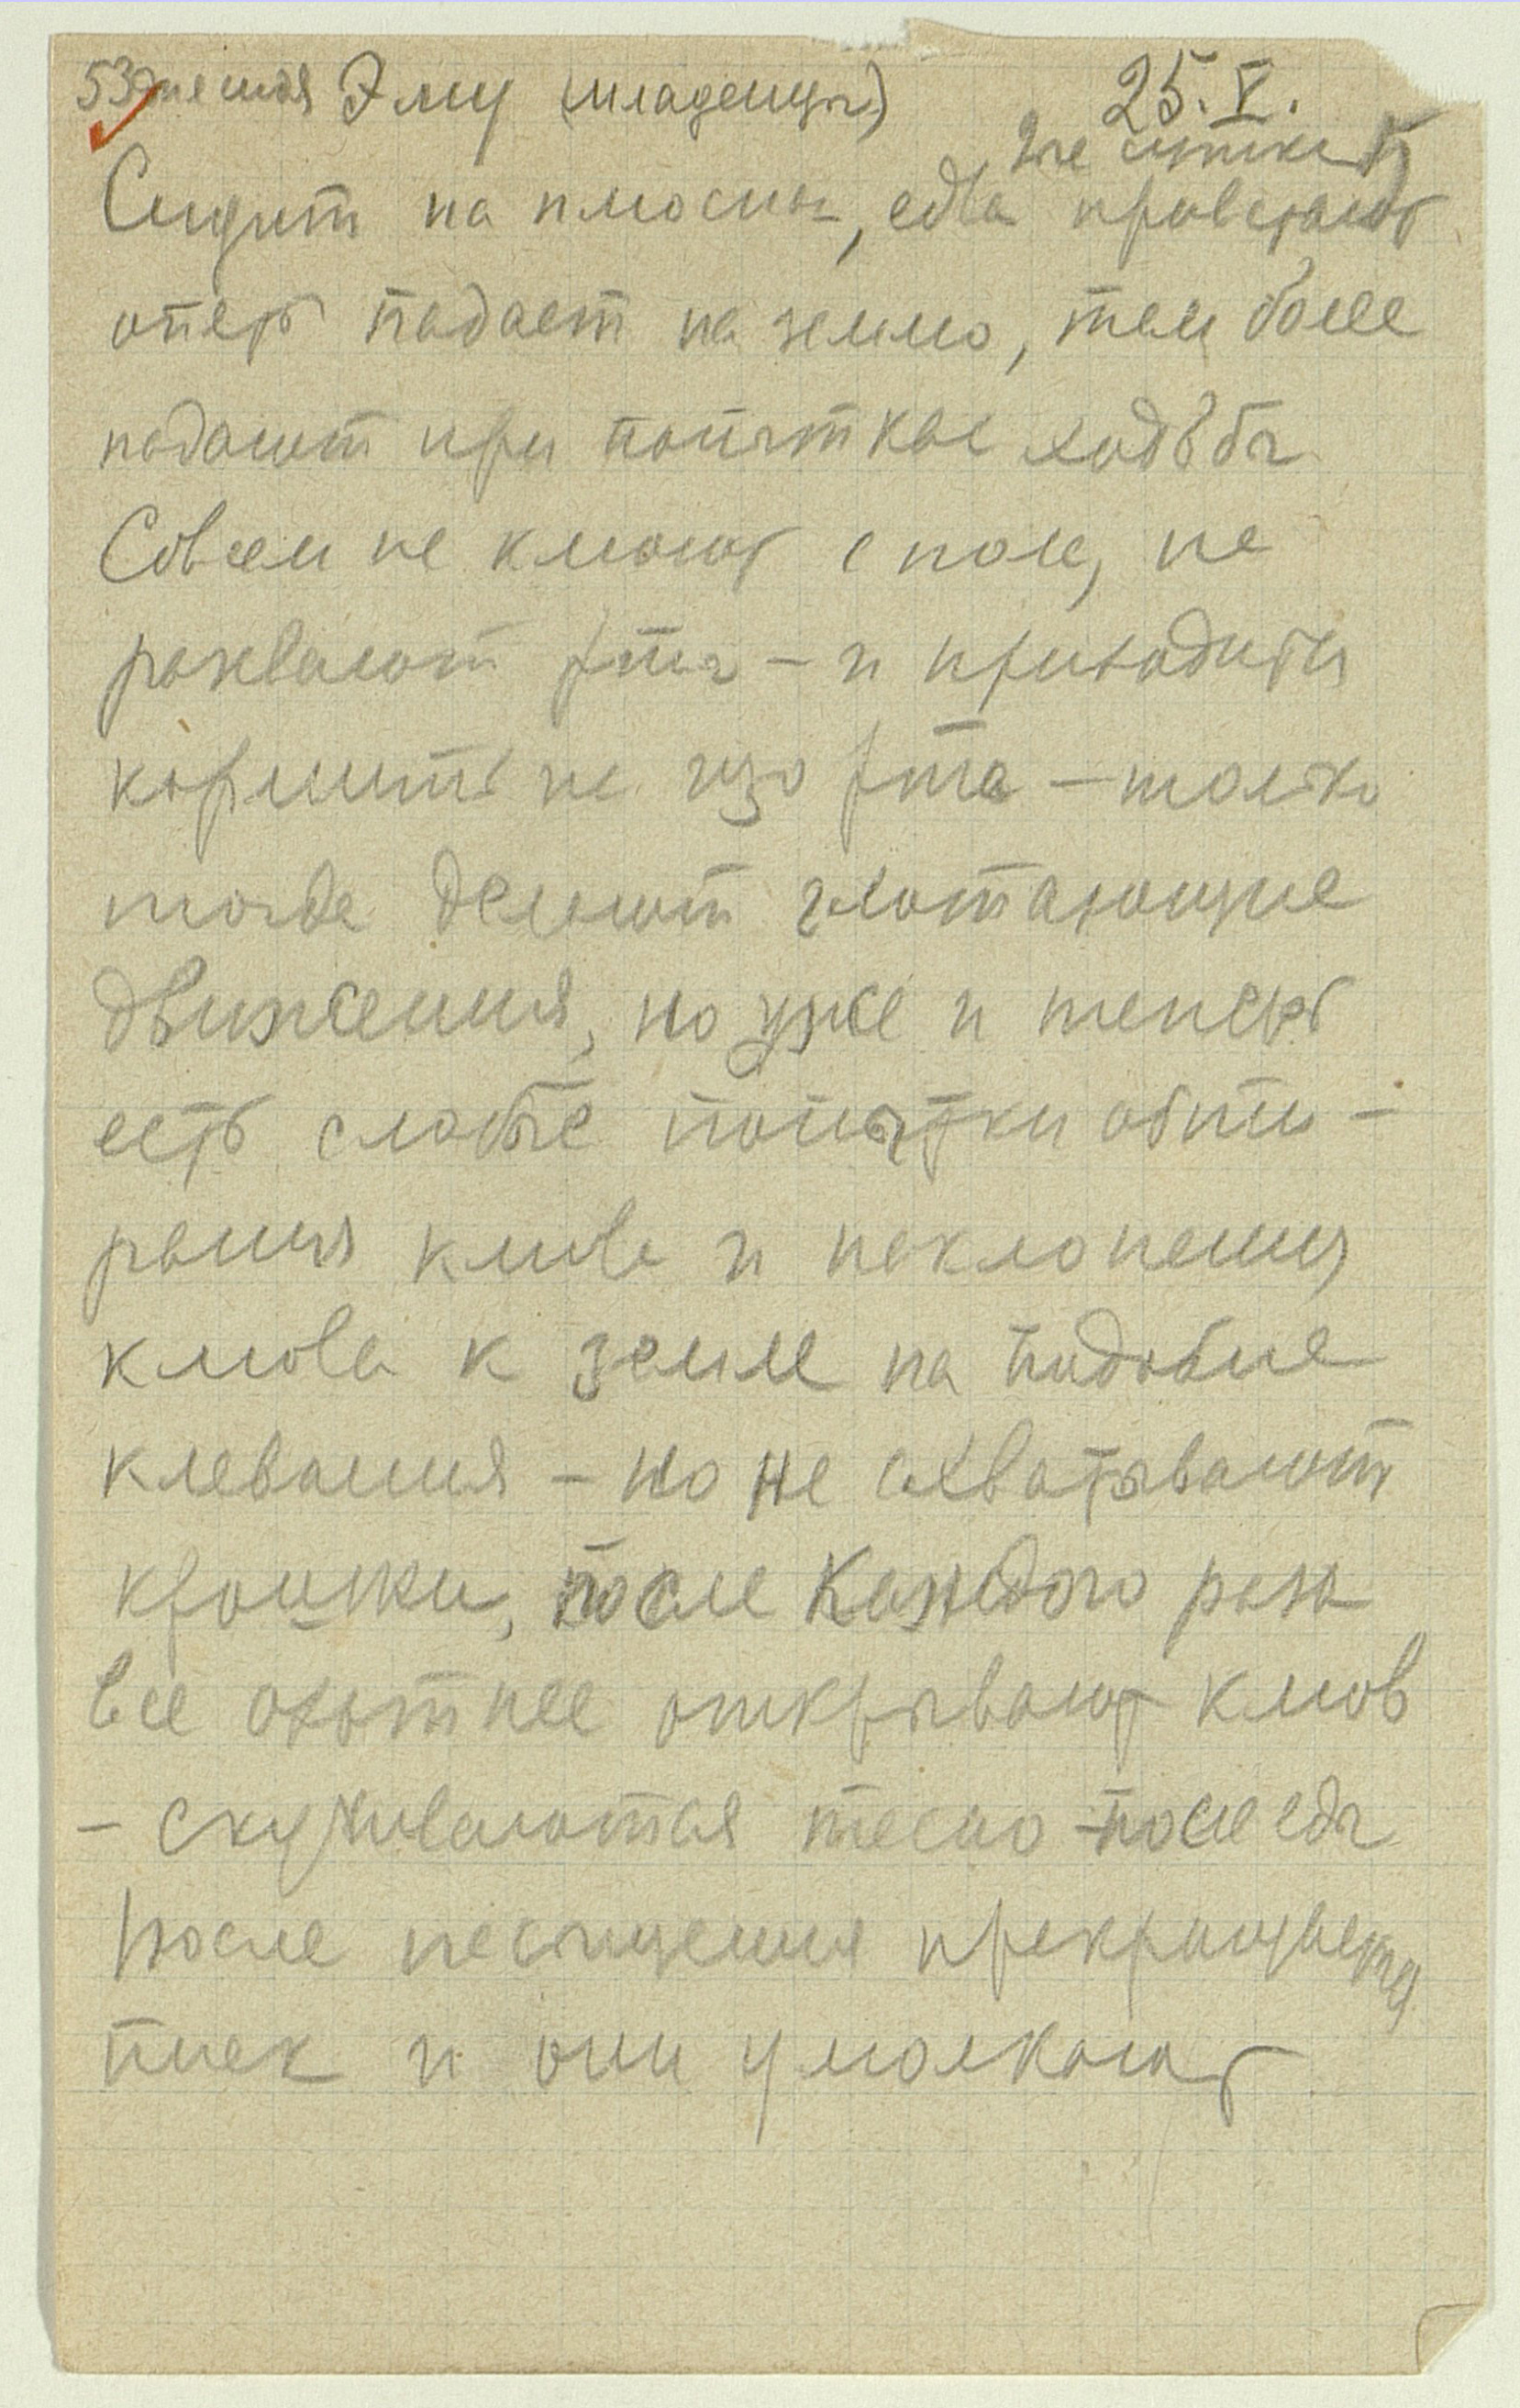 53 Эму (младенцы) 25.V.
2ые сутки
Сидят на плюснах, едва привстают
опять падает на землю, тем более
падают при попытках ходьбы
Совсем не клюют с пола, не
разевают рта – и приходится
кормить не изо рта – только
тогда делают глотающие
движения, но уже и теперь
есть слабые попытки обти-
рания клюва и наклонения
клюва к земле на подобие
клевания – но не схватывают
крошки, после каждого раза
все охотнее открывают клюв
– скучиваются тесно после еды
После насыщения прекращается
писк и они умолкают